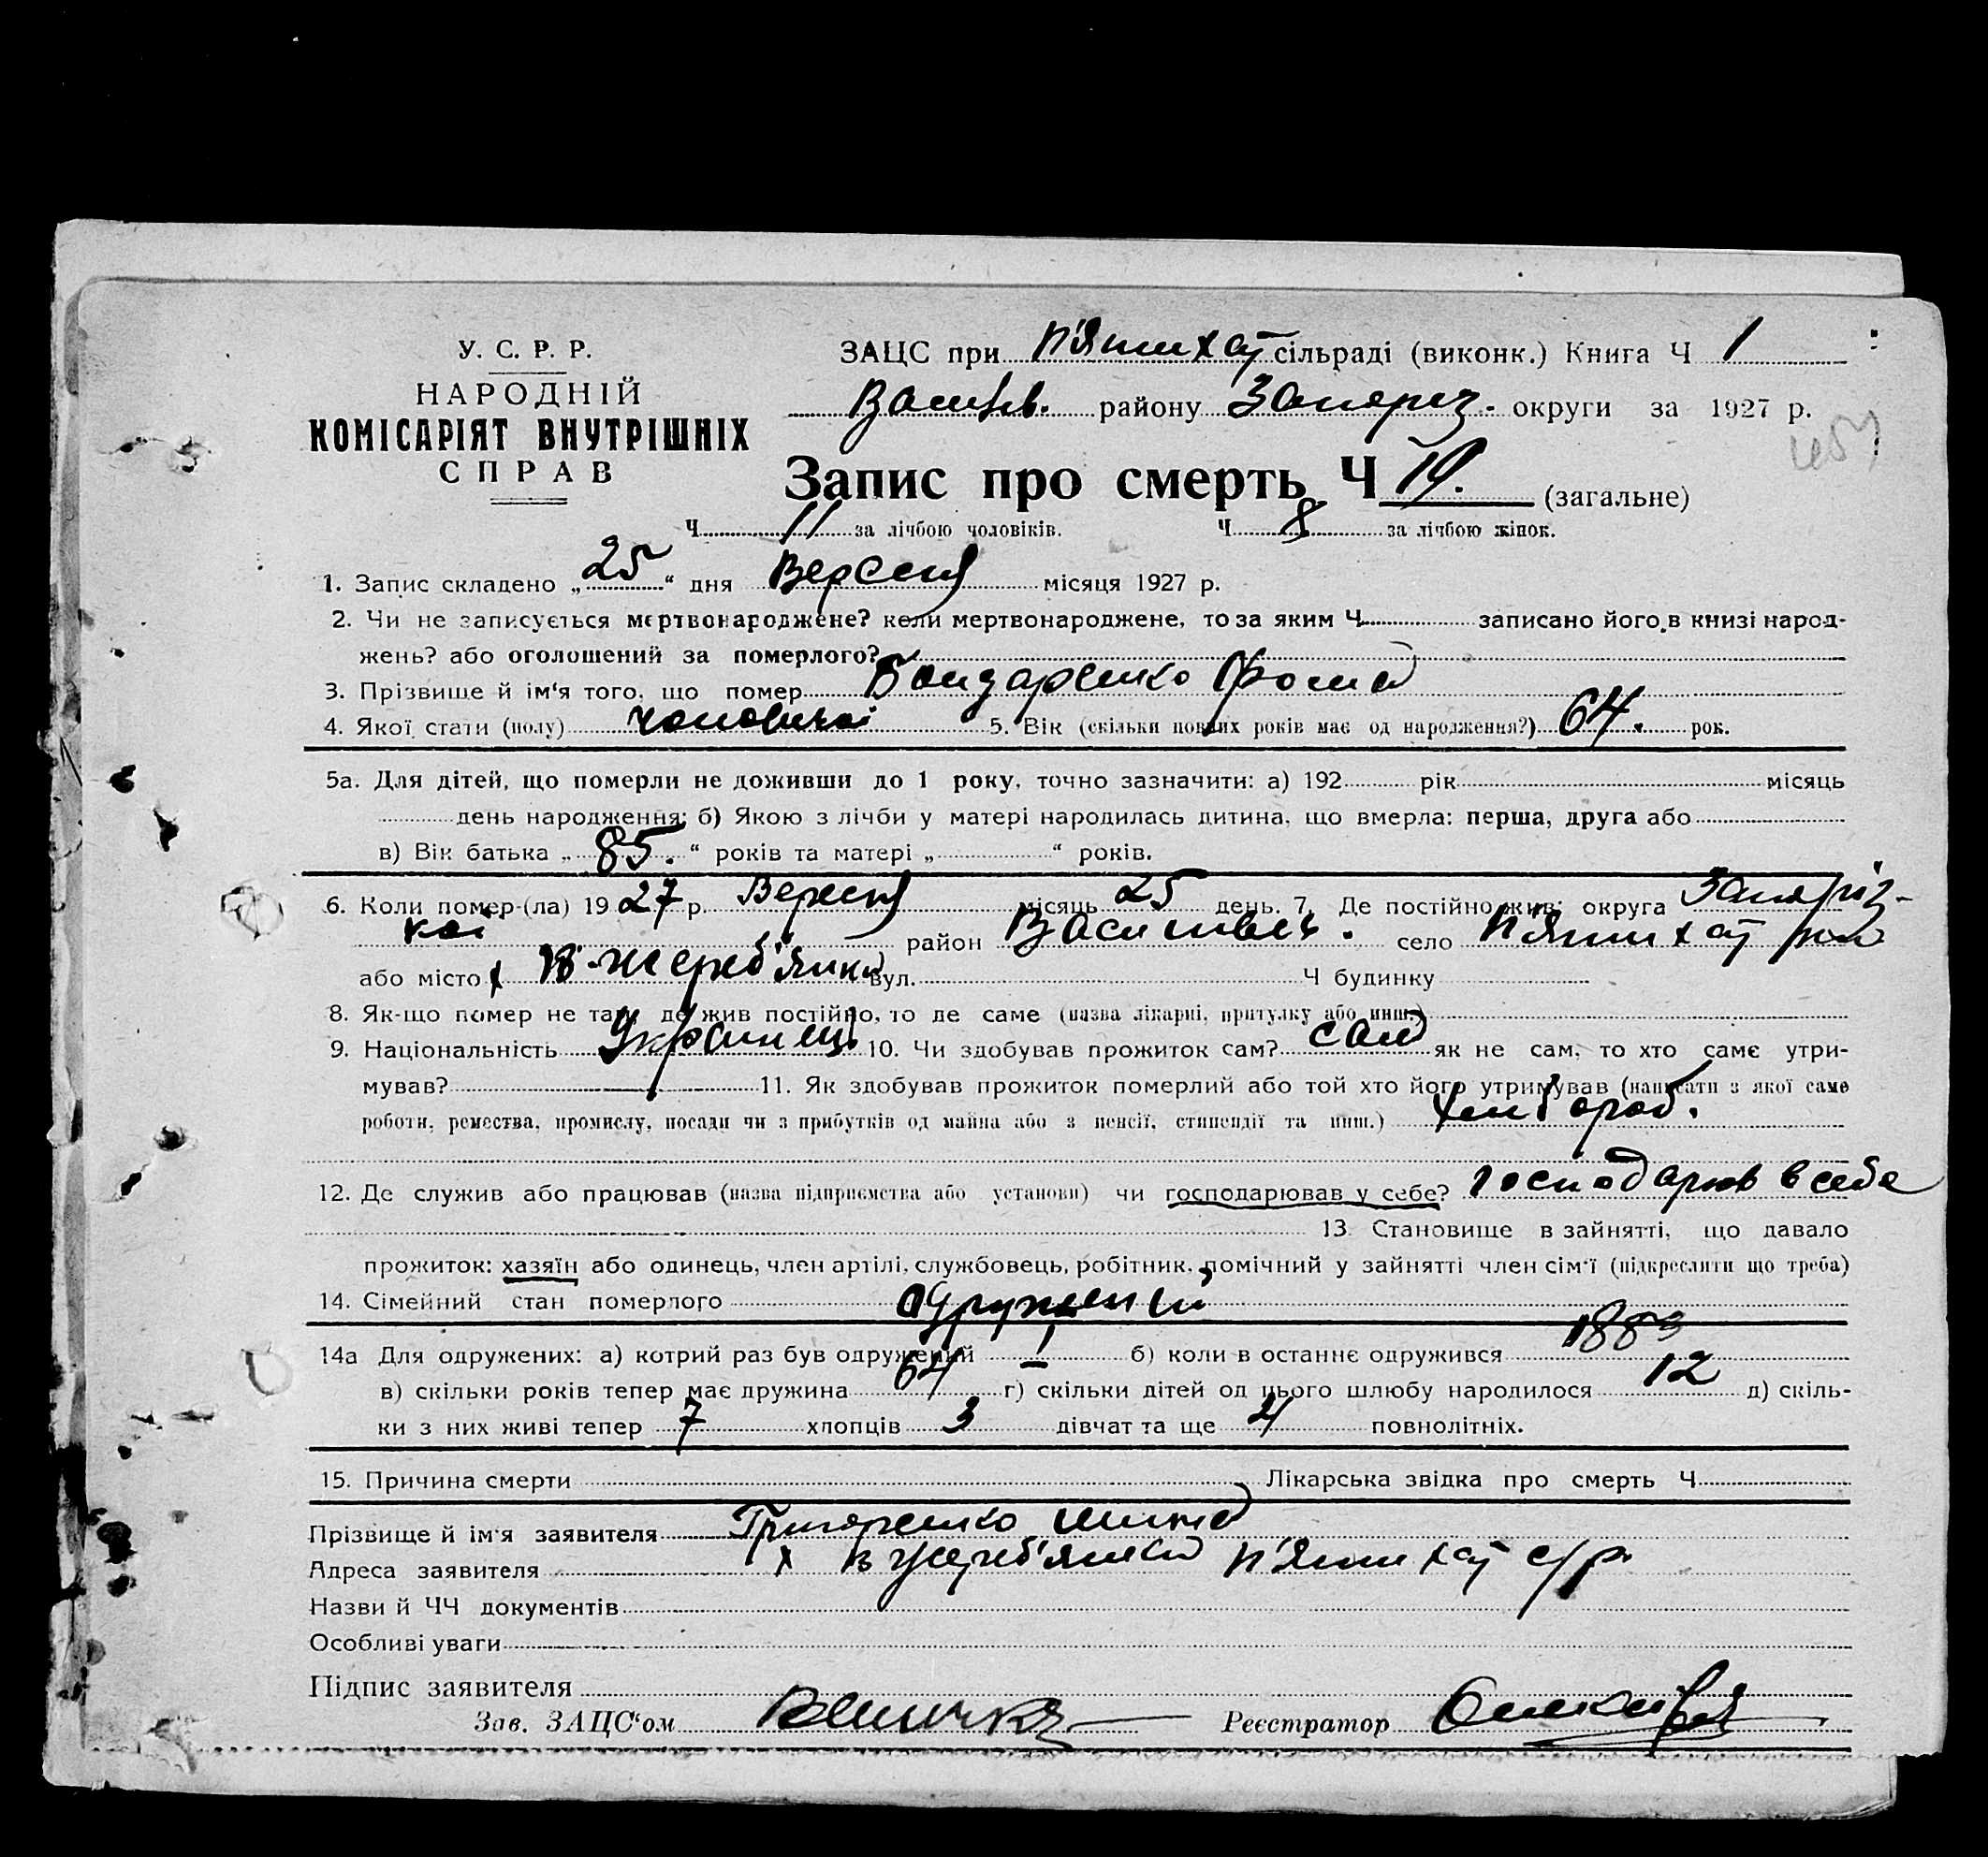 У. С. Р. Р.
НАРОДНІЙ
КОМІСАРІЯТ ВНУТРІШНІХ
СПРАВ
ЗАЦС при П'ятихат сільраді (виконк.) Книга Ч 1
Василів. району Запоріз. округи за 1927 р.
Запис про смерть Ч 19. (загальне)
Ч 11 за лічбою чоловіків. Ч 8 за лічбою жінок.
1. Запис складено „25“ дня Вересня місяця 1927 р.
2. Чи не записується мертвонароджене? коли мертвонароджене, то за яким Ч записано його в книзі народ-
жень? або оголошений за померлого?
3. Прізвище й ім'я того, що помер Бондаренко Фома
4. Якої стати (полу) чоловічої 5. Вік (скільки повних років має од народження?) 64. рок.
5а. Для дітей, що померли не доживши до 1 року, точно зазначити: а) 192 рік місяць
день народження; б) Якою з лічби у матері народилась дитина, що вмерла: перша, друга або
в) Вік батька „85.“ років та матері „ “ років.
6. Коли помер-(ла) 1927 р. Вересня місяць 25 день. 7. Де постійно жив: округа Запоріз-
кої район Васиlівськ. село П'ятихат
або місто х В-Жереб'янка вул. Ч будинку
8. Як-що помер не там, де жив постійно, то де саме (назва лікарні, притулку або инш.)
9. Національність Українець 10. Чи здобував прожиток сам? сам як не сам, то хто саме утри-
мував? 11. Як здобував прожиток померлий або той хто його утримував (написати з якої саме
роботи, ремества, промислу, посади чи з прибутків од майна або з пенсії, стипендії та инш.) хлібороб.
12. Де служив або працював (назва підприємства або установи) чи господарював у себе? господарював в себе
13. Становище в зайнятті, що давало
прожиток: хазяїн або одинець, член артілі, службовець, робітник, помічний у зайнятті член сім'ї (підкреслити що треба)
14. Сімейний стан померлого одружений
14а Для одружених: а) котрий раз був одружений 1 б) коли в останнє одружився 1883
в) скільки років тепер має дружина 64 г) скільки дітей од цього шлюбу народилося 12 д) скіль-
ки з них живі тепер 7 хлопців 3 дівчат та ще 4 повнолітніх.
15. Причина смерти Лікарська звідка про смерть Ч
Прізвище й ім'я заявителя Григоренко
Адреса заявителя х В Жереб'янка П'ятихат с/р.
Назви й ЧЧ документів
Особливі уваги
Підпис заявителя
Зав. ЗАЦС'ом
Реєстратор